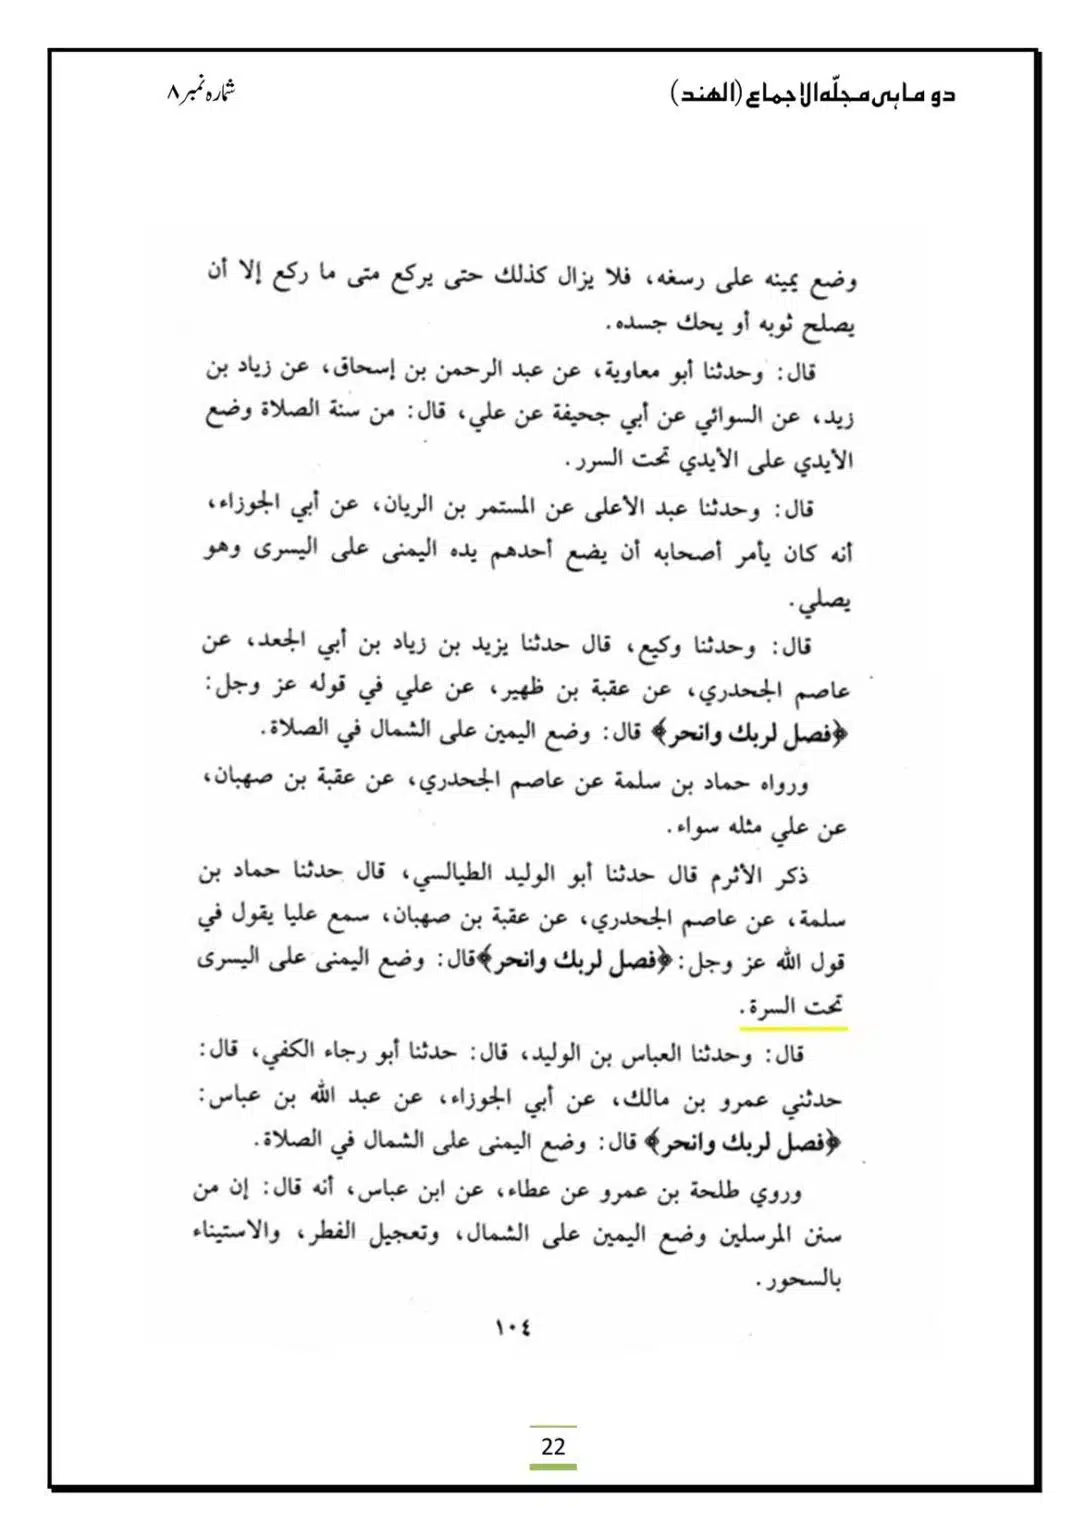 دو ماہی مجلّہ الاجماع (الھند)
شمارہ نمبر ۸
وضع يمينه على رسغه، فلا يزال كذلك حتى يركع متى ما ركع إلا أن
يصلح ثوبه أو يحك جسده.
قال: وحدثنا أبو معاوية، عن عبد الرحمن بن إسحاق، عن زياد بن
زيد، عن السوائي عن أبي جحيفة عن علي، قال: من سنة الصلاة وضع
الأيدي على الأيدي تحت السرر.
قال: وحدثنا عبد الأعلى عن المستمر بن الريان، عن أبي الجوزاء،
أنه كان يأمر أصحابه أن يضع أحدهم يده اليمنى على اليسرى وهو
يصلي.
قال: وحدثنا وكيع، قال حدثنا يزيد بن زياد بن أبي الجعد، عن
عاصم الجحدري، عن عقبة بن ظهير، عن علي في قوله عز وجل:
﴿فصل لربك وانحر﴾ قال: وضع اليمين على الشمال في الصلاة.
ورواه حماد بن سلمة عن عاصم الجحدري، عن عقبة بن صهبان،
عن علي مثله سواء.
ذكر الأثرم قال حدثنا أبو الوليد الطيالسي، قال حدثنا حماد بن
سلمة، عن عاصم الجحدري، عن عقبة بن صهبان، سمع عليا يقول في
قول الله عز وجل: ﴿فصل لربك وانحر﴾قال: وضع اليمنى على اليسرى
تحت السرة.
قال: وحدثنا العباس بن الوليد، قال: حدثنا أبو رجاء الكفي، قال:
حدثني عمرو بن مالك، عن أبي الجوزاء، عن عبد الله بن عباس:
﴿فصل لربك وانحر﴾ قال: وضع اليمنى على الشمال في الصلاة.
وروي طلحة بن عمرو عن عطاء، عن ابن عباس، أنه قال: إن من
سنن المرسلين وضع اليمين على الشمال، وتعجيل الفطر، والاستيناء
بالسحور.
١٠٤
22